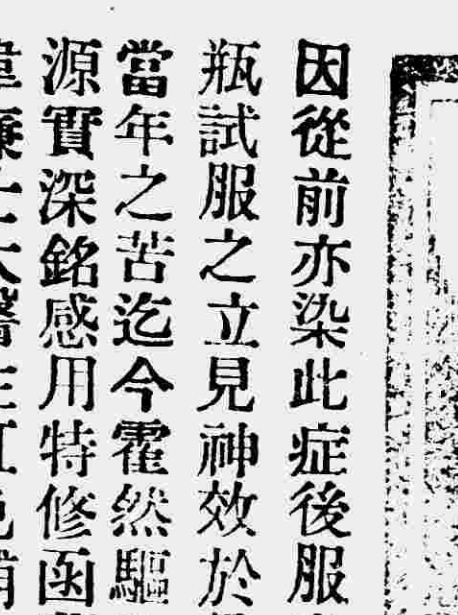 因從前亦染此症後服
瓶試服之立見神效於
當年之苦迄今霍然驅
源實深銘感用特修函
韋廉士大醫生紅色補